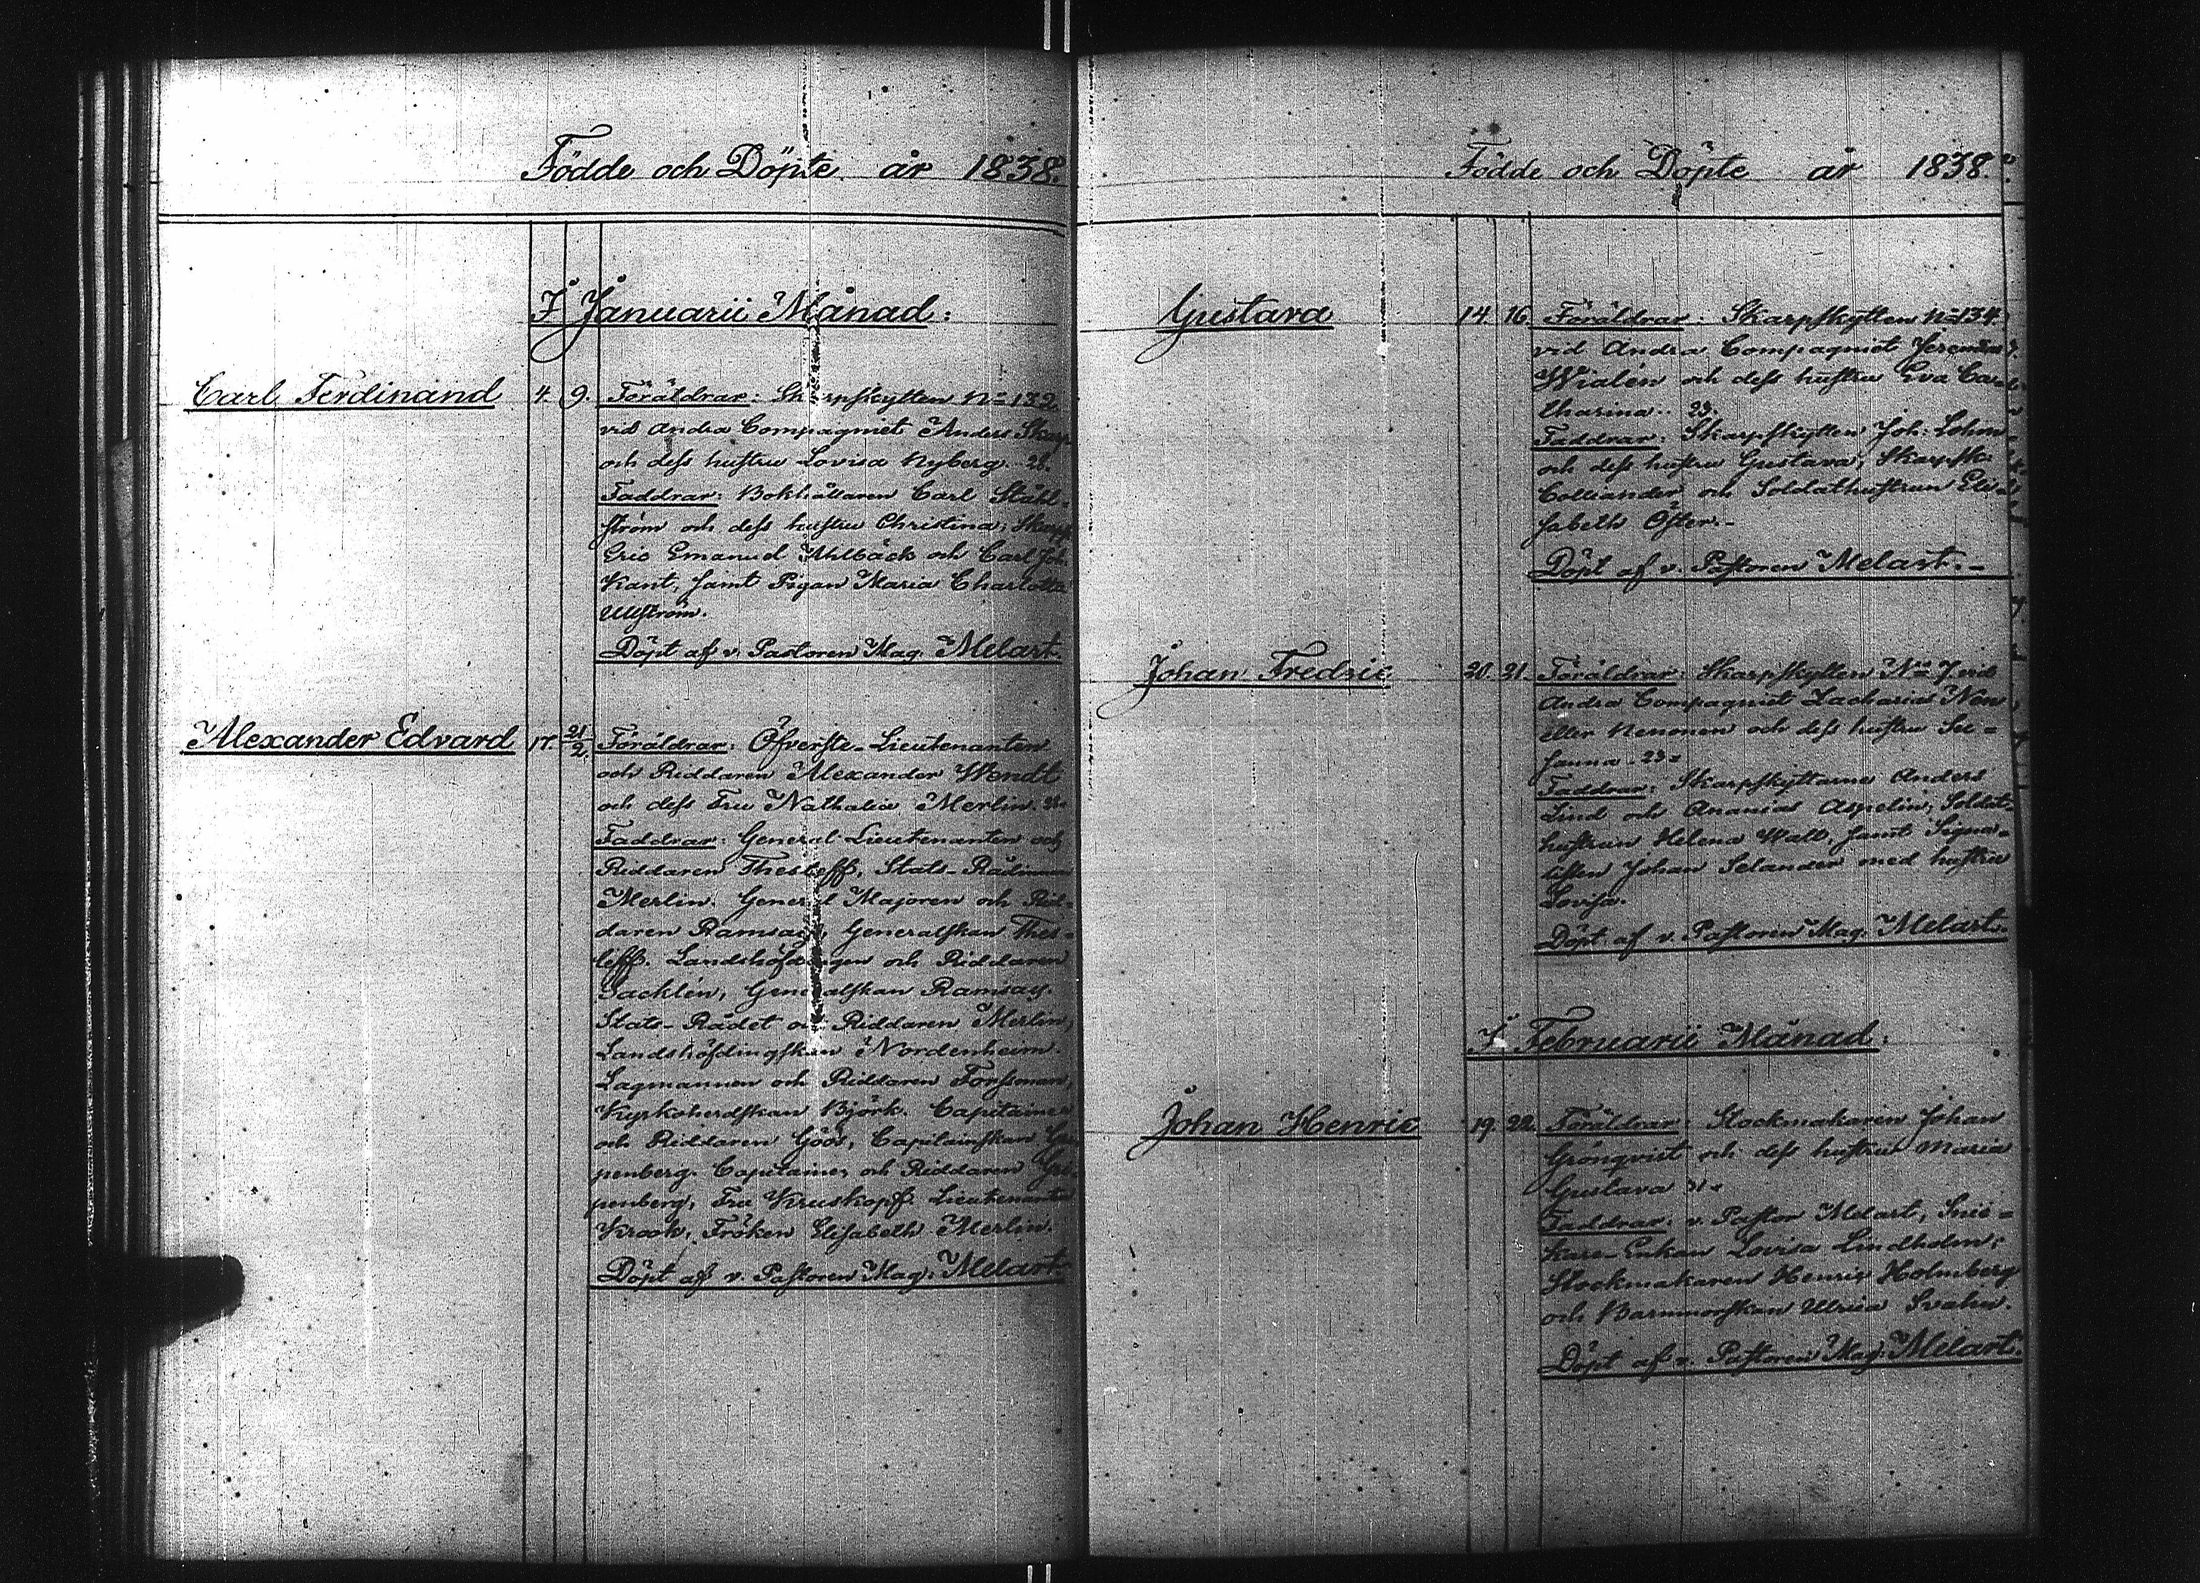 Födde och Döpte år 1838.
I Januarii Månad:
Carl Ferdinand 4. 9. Föräldrar: Skarpskytten No 132
vid Andra Compagniet Anders Skarp
och dess hustru Lovisa Nyberg. 26.
Faddrar: Bokhållaren Carl Ståhl-
ström och dess hustru Christina, Skarpsk.
Eric Emanuel Ahlbäck och Carl Joh.
Kant, samt Pigan Maria Charlotta
Ullström.
Döpt af v. Pastoren Mag. Melart.
Alexander Edvard 17. 21/2. Föräldrar: Öfverste-Lieutenanten
och Riddaren Alexander Wendt
och dess Fru Nathalia Merlin.
Faddrar: General-Lieutenanten och
Riddaren Thesleff, Stats-Rådinnan
Merlin. General Majoren och Rid-
daren Ramsay, Generalskan Thes-
leff. Landshöfdingen och Riddaren
Sacklén, Generalskan Ramsay.
Stats-Rådet och Riddaren Merlin,
Landshöfdingskan Nordenheim.
Lagmannen och Riddaren Forssman,
Kyrkoherdskan Björk. Capitainen
och Riddaren Göös, Capitainskan Gri-
penberg. Capitainen och Riddaren Gri-
penberg, Fru Kruskopf. Lieutenanten
Krook, Fröken Elisabeth Merlin.
Döpt af v. Pastoren Mag. Melart.
Födde och Döpte år 1838.
Gustava 14. 16. Föräldrar: Skarpskytten No 134.
vid Andra Compagniet Jeremias
Wialén och dess hustru Eva Ca-
tharina. 23.
Faddrar: Skarpskytten Joh. Lohm
och dess hustru Gustava, Skarpsk.
Colliander och Soldathustrun Eli-
sabeth Öster.
Döpt af v. Pastoren Melart.
Johan Fredric 20. 21. Föräldrar: Skarpskytten No 7 vid
Andra Compagniet Zacharias Nen
eller Nenonen och dess hustru Su-
sanna. 23.
Faddrar: Skarpskyttarne Anders
Lind och Ananias Aspelin, Soldat-
hustrun Helena Wall, samt Signa-
listen Johan Selander med hustru
Lovisa.
Döpt af v. Pastoren Mag. Melart.
I Februarii Månad:
Johan Henric 19. 22. Föräldrar: Stockmakaren Johan
Grönqvist och dess hustru Maria
Gustava
Faddrar: v. Pastor Melart, Snic-
kare-Enkan Lovisa Lindholm,
Stockmakaren Henric Holmberg
och Barnmorskan Ulrica Svahn.
Döpt af v. Pastoren Mag. Melart.